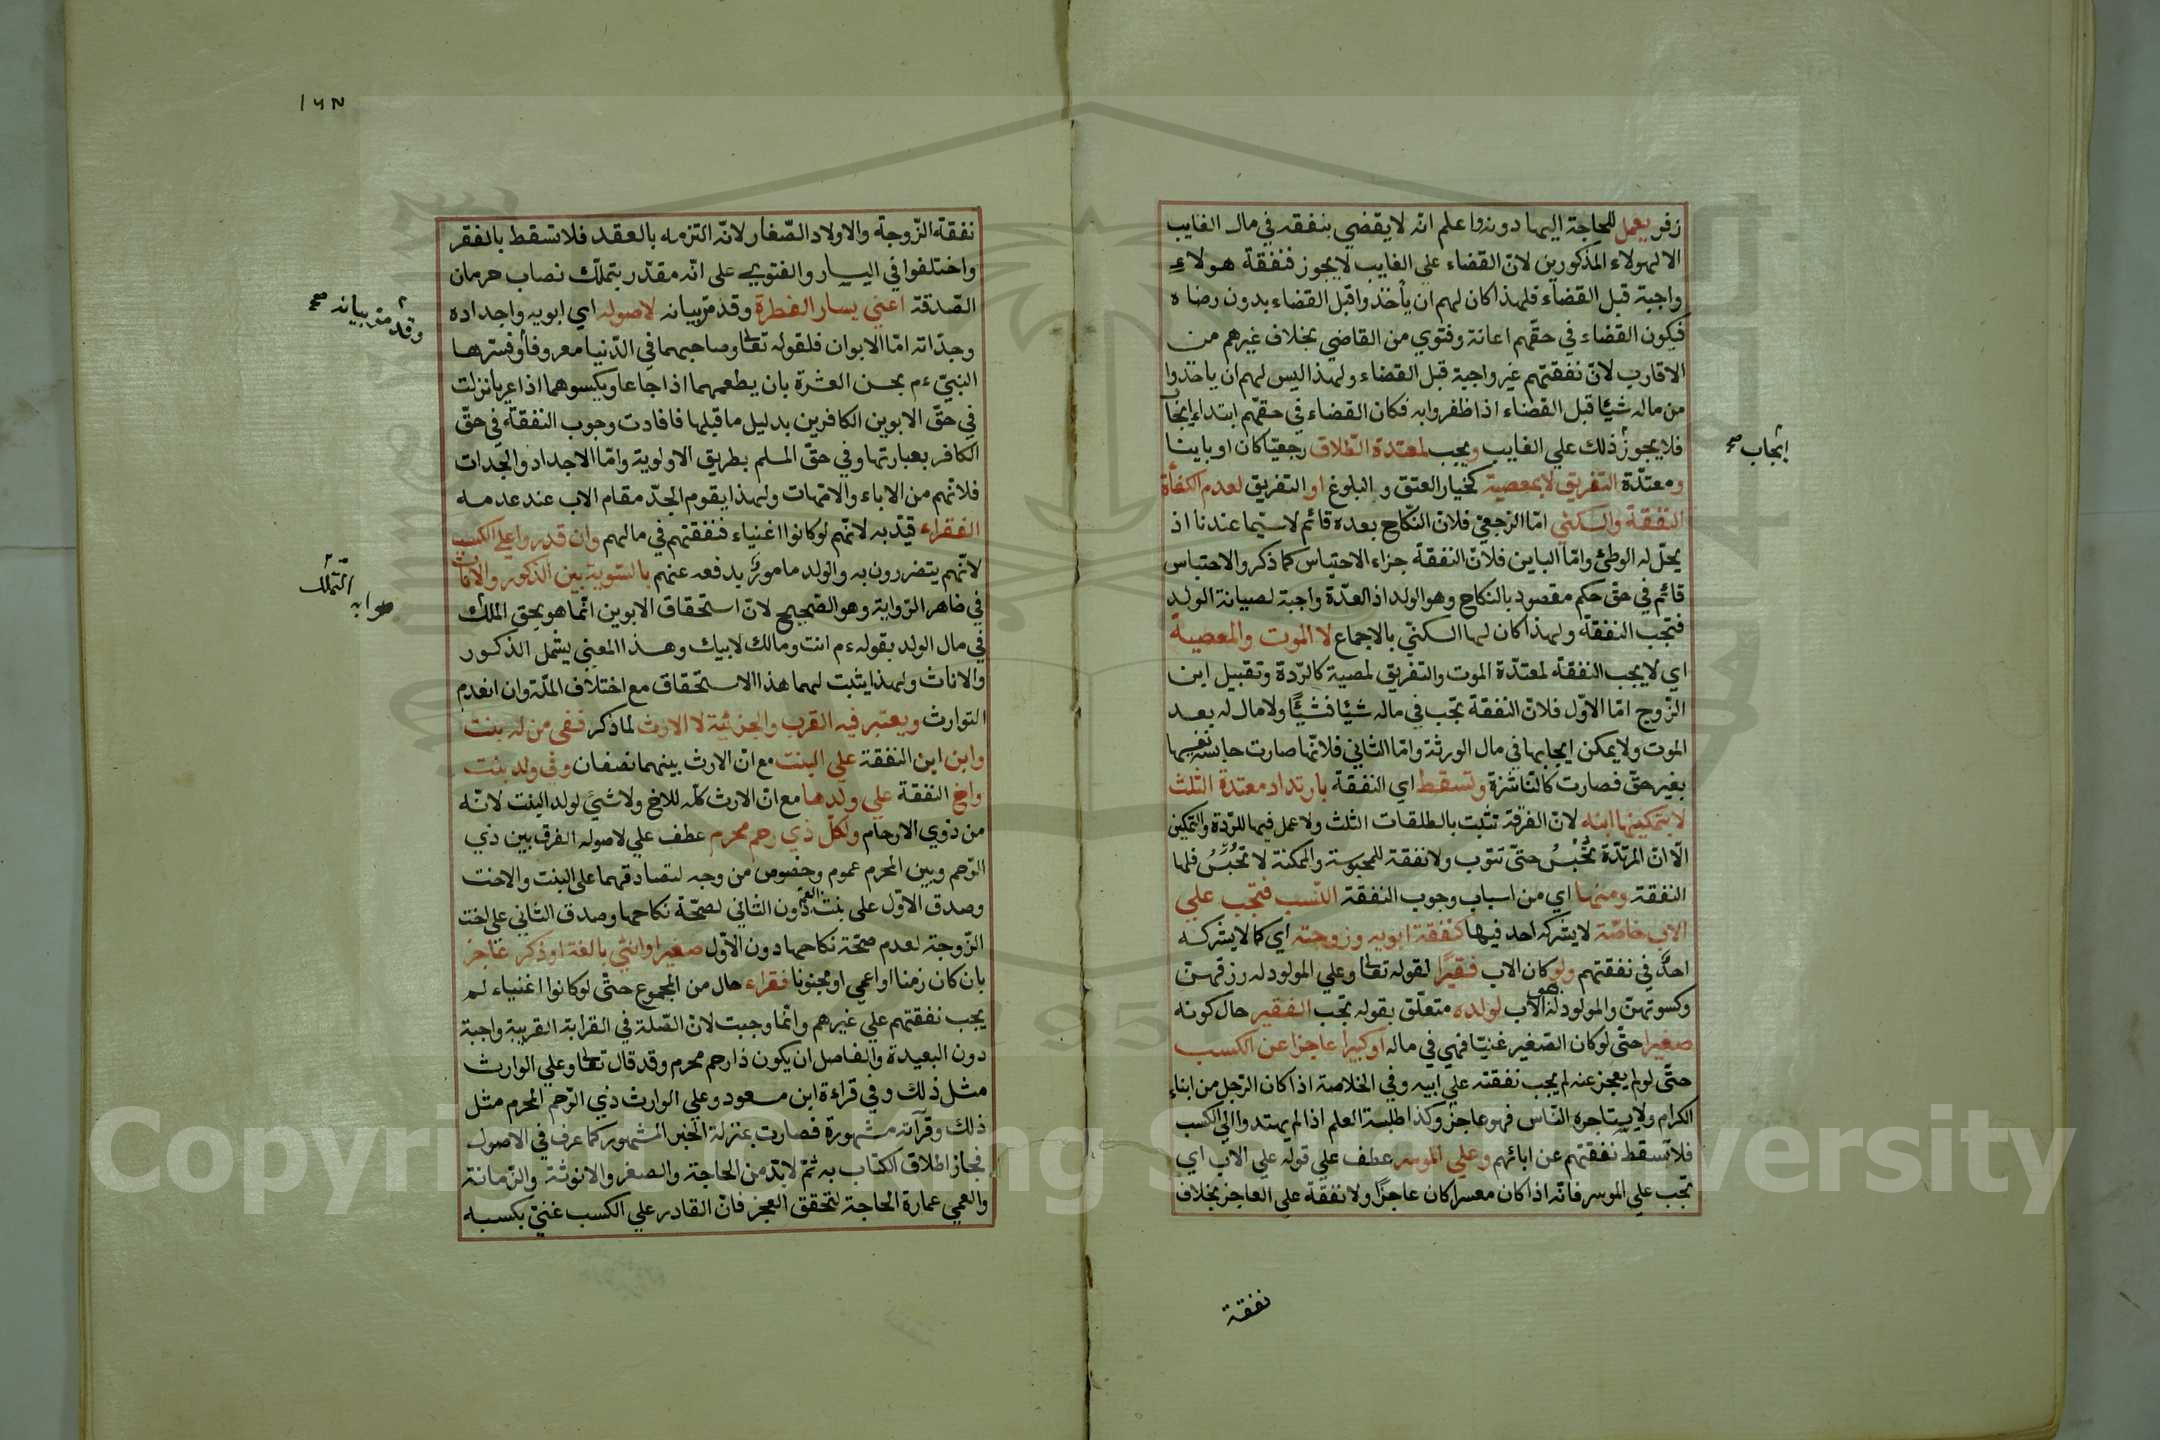 زفر يعمل للحاجة اليها دونه واعلم انه لا يقضي بنفقه في مال الغايب
الا لهولاء المذكورين لانّ القضاء علي الغايب لا يجوز فنفقة هولاء
واجبة قبل القضاء فلهذا كان لهم ان ياخذوا قبل القضاء بدون رضاه
فيكون القضاء في حقّهم اعانة وفتوي من القاضي بخلاف غيرهم من
الاقارب لانّ نفقتهم غير واجبة قبل القضاء ولهذا ليس لهم ان ياخذوا
من ماله شيئا قبل القضاء اذا ظفروا به فكان القضاء في حقهم ابتداء ايجاب
فلا يجوز ذلك علي الغايب ويجب لمعتدة الطّلاق رجعيّا كان او باينا
ايجاب صح
ومعتدّة التفريق لا بمعصية كخيار العتق و البلوغ او التفريق لعدم الكفأة
النفقة والسكني امّا الرجعيّ فلانّ النّكاح بعده قائم لا سيّما عندنا اذ
يحلّ له الوطئ وامّا الباين فلانّ النفقة جزاء الاحتباس كما ذكر والاحتباس
قائم في حقّ حكم مقصود بالنكاح وهو الولد اذ العدّة واجبة لصيانة الولد
فتجب النفقة ولهذا كان لها السكنيّ بالاجماع لا الموت والمعصية
اي لا يجب النفقة لمعتدّة الموت والتفريق لمصية كالرّدة وتقبيل ابن
الزّوج امّا الاوّل فلانّ النفقة تجّب في ماله شيئا فشيئًا ولا مال له بعد
الموت ولا يمكن ايجابها في مال الورثة وامّا الثاني فلانّها صارت حابسة نفسها
بغير حقّ فصارت كالنّاشزة وتسقط اي النفقة بارتداد معتدة الثلث
لا بتمكينها ابنه لانّ الفرقة تثبت بالطلقات الثلث ولا عمل فيها للرّدة والتمكين
الّا انّ المرتدّة تُحْبَسُ حتّي تتوب ولا نفقة للمحبوسة والممكنة لا تُحبَسُ فلها
النفقة ومنها اي من اسباب وجوب النفقة النّسب فتجب علي
الاب خاصّة لا يشركه احد فيها كنفقة ابويه وزوجته اي كما لا يشركه
احدٌ في نفقتهم ولو كان الاب فقيرًا لقوله تعالى وعلي المولود له رزقهنّ
وكسوتهنّ والمولود له هو الاب لولده متعلّق بقوله تجّب الفقير حال كونه
صغيرا حتّي لو كان الصّغير غنيّا فهي في ماله او كبيرا عاجزا عن الكسب
حتّي لو لم يعجز عنه لم يجب نفقته علي ابيه وفي الخلاصة اذا كان الرّجل من ابناء
الكرام ولا يستاجره النّاس فهو عاجز وكذا طلبة العلم اذا لم يهتدوا الي الكسب
فلا تسقط نفقتهم عن ابائهم وعلي الموسر عطف علي قوله علي الاب اي
تجّب علي الموسر فانّه اذا كان معسرا كان عاجزًا ولا نفقة علي العاجز بخلاف
نفقة
١٦٣
نفقة الزّوجة والاولاد الصّغار لانّه التزمه بالعقد فلا تسقط بالفقر
واختلفوا في اليسار والفتوي علي انّه مقدّر بتملّك نصاب حرمان
الصّدقة اعني يسار الفطرة وقد مرّ بيانه لاصوله اي ابويه واجداده
وقد مر بيانه صح
وجدّاته امّا الابوان فلقوله تعالى وصاحبهما في الدّنيا معروفا وفسّرها
النبيّ ءم بحسن العشرة بان يطعمهما اذا جاعا ويكسوهما اذا عريا نزلت
في حقّ الابوين الكافرين بدليل ما قبلها فافادت وجوب النفقة في حقّ
الكافر بعبارتها وفي حقّ المسلم بطريق الاولوية وامّا الاجداد والجدات
فلانّهم من الاباء والامّهات ولهذا يقوم الجدّ مقام الاب عند عدمه
الفقراء قيّد به لانّهم لو كانوا اغنياء فنفقتهم في مالهم وان قدروا علي الكسب
لانّهم يتضررون به والولد مامور بدفعه عنهم بالتسوية بين الذكور والاناث
في ظاهر الرّواية وهو الصّحيح لانّ استحقاق الابوين انّما هو بحق الملك
صوابه التّملّك
في مال الولد بقوله ءم انت ومالك لابيك وهذا المعني يشمل الذكور
والاناث ولهذا يثبت لهما هذا الاستحقاق مع اختلاف الملّة وان انعدم
التوارث ويعتبر فيه القرب والجزئية لا الارث لما ذكر ففي من له بنت
وابن ابن النفقة علي البنت مع انّ الارث بينهما نصفان وفي ولد بنت
واخ النفقة علي ولدها مع انّ الارث كلّه للاخ ولا شيئ لولد البنت لانّه
من ذوي الارحام ولكلّ ذي رحم محرم عطف علي لاصوله الفرق بين ذي
الرّحم وبين المحرم عموم وخصوص من وجه لتصادقهما علي البنت والاخت
وصدق الاوّل علي بنت العمّ دون الثاني لصحّة نكاحها وصدق الثّاني علي اخت
الزّوجة لعدم صحّة نكاحها دون الاوّل صغير او انثي بالغة او ذكر عاجز
بان كان زمنا او اعمي او مجنونا فقراء حال من المجموع حتّي لو كانوا اغنياء لم
يجب نفقتهم علي غيرهم وانّما وجبت لانّ الصّلة في القرابة القريبة واجبة
دون البعيدة والفاصل ان يكون ذا رحم محرم وقد قال تعالى وعلي الوارث
مثل ذلك وفي قراءة ابن مسعود وعلي الوارث ذي الرّحم المحرم مثل
ذلك وقرآته مشهورة فصارت بمنزلة الخبر المشهور كما عرف في الاصول
فجاز اطلاق الكتاب به ثمّ لابدّ من الحاجة والصغر والانوثة والزّمانة
والعمي عمارة الحاجة لتحقق العجز فانّ القادر علي الكسب غنيّ بكسبه
Copyright © King Saud University